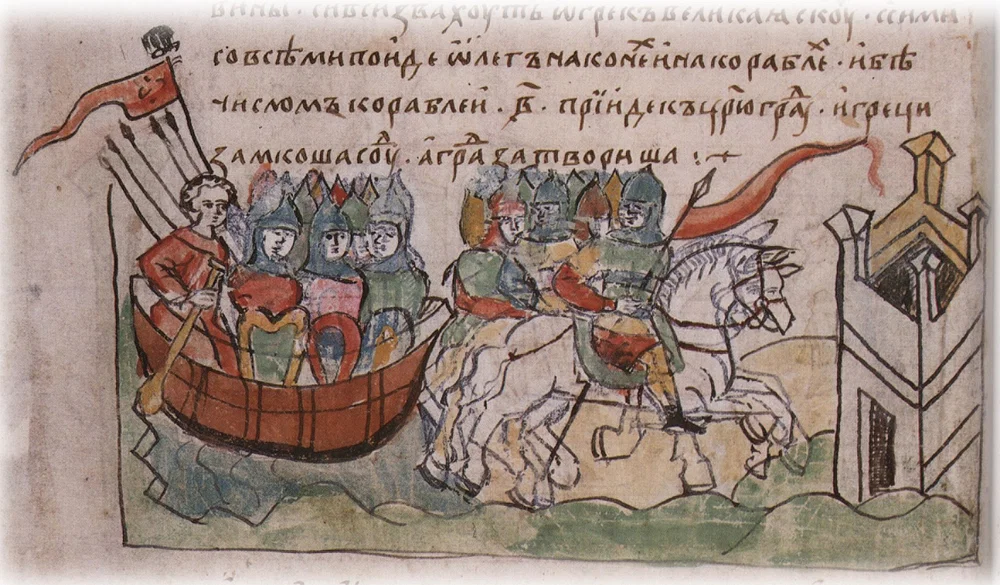 вины · си вси звахоуть ѿ грекъ великаꙗ скоу · с сими
со всѣми поиде ѿлегъ на конеⷯ и на кораблеⷯ · и бѣ
числомъ кораблеи · в҃ · прїиде къ цр҃ю граⷣу · и греци
замкоша соуⷣ · а граⷣ затвориша :~